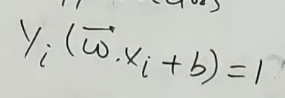 yᵢ(w⃗.xᵢ+b)=1